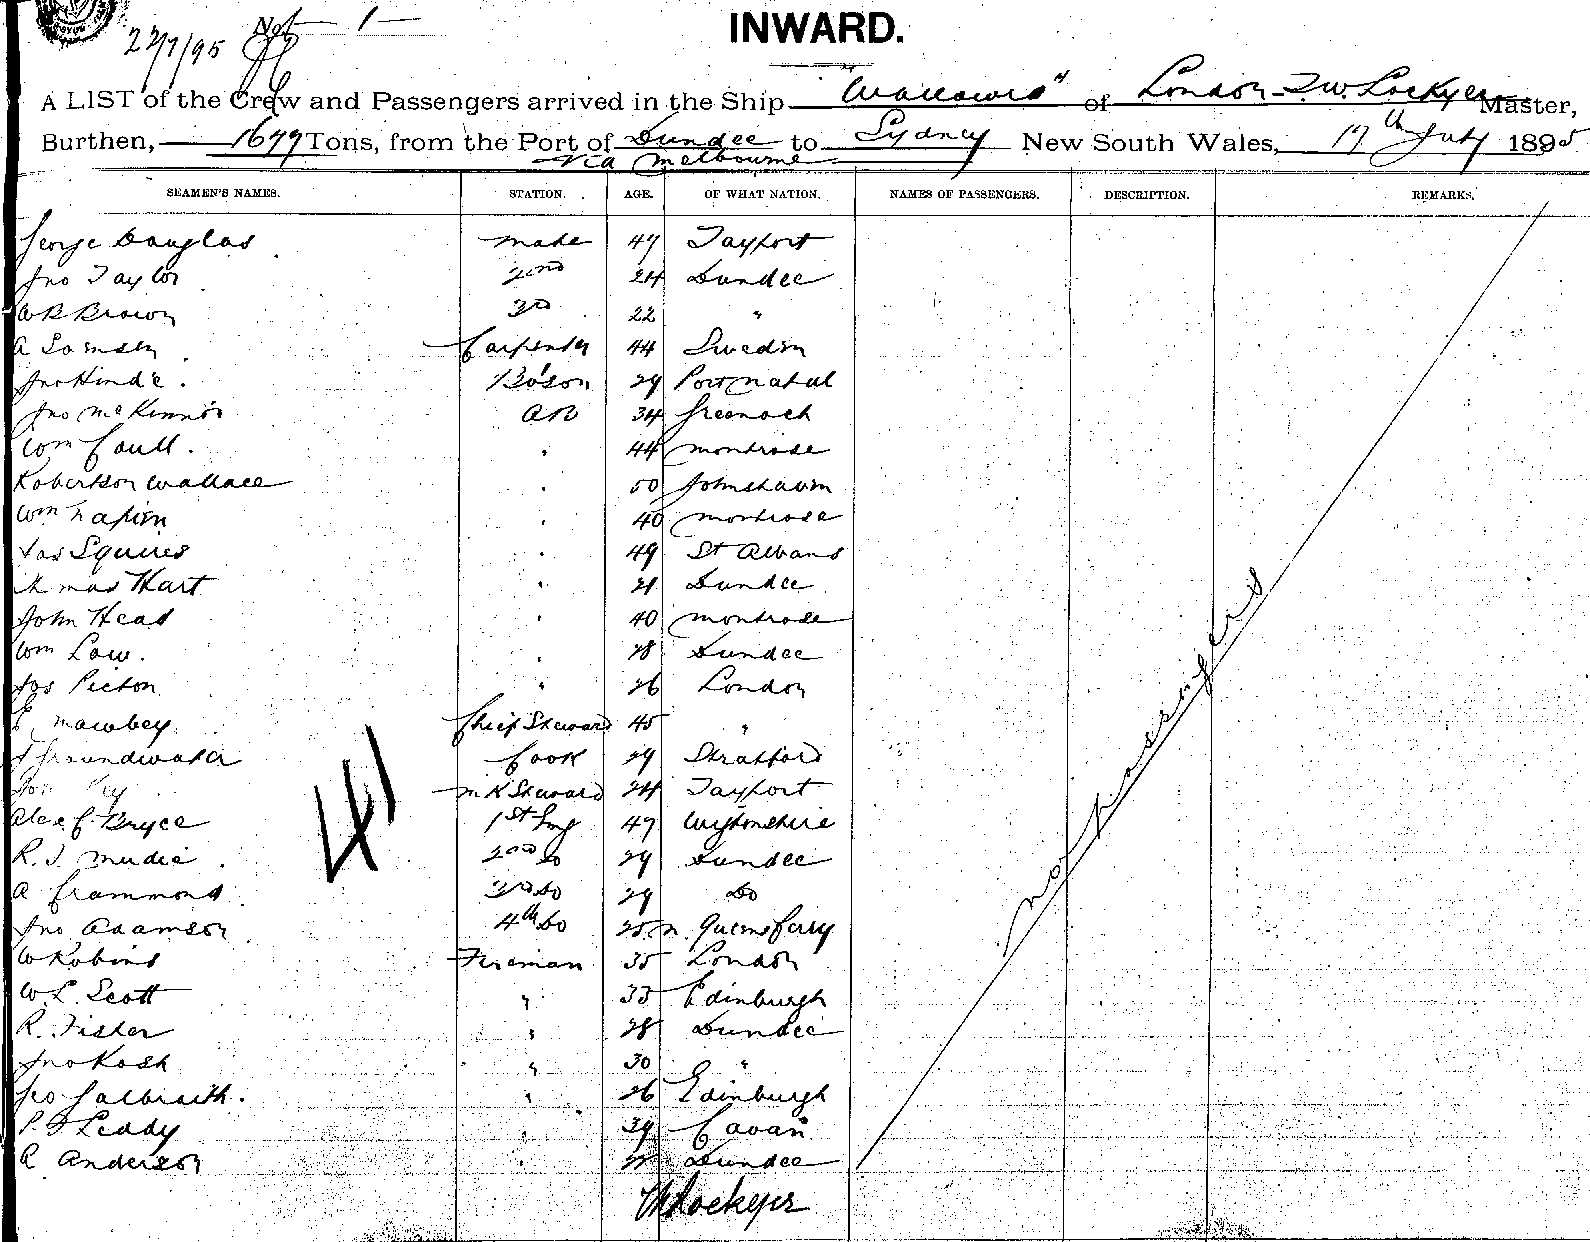 22/7/95 Net 1
INWARD.
A LIST of the Crew and Passengers arrived in the Ship of London T.W. Lockyer Master,
Burthen, 1679 Tons, from the Port of Dundee to Sydney New South Wales, 17th July 1895
via Melbourne
SEAMEN'S NAMES. STATION. AGE. OF WHAT NATION. NAMES OF PASSENGERS. DESCRIPTION. REMARKS.
George Douglas mate 47 Tayport
Jno Taylor 2nd 24 Dundee
W R Brown 3rd 22 "
A Carpenter 44 Sweden
Jno Hinde. Bo'son 29 Port Natal
Jno McKinnon AB 34 Greenock
Wm Coull. " 44 Montrose
Robertson Wallace " 50 Johnshaven
Wm " 40 Montrose
Jas Squires " 49 St Albans
Thomas Hart " 21 Dundee
John Head " 40 Montrose
Wm Law. " 28 Dundee
Jos Picton " 26 London
Mawbey Chief Steward 45 "
Groundwater Cook 29 Stratford
M R Steward 24 Tayport
Alex C. Bryce 1st Eng 47 Wigtonshire
R. J. Mudie 2nd Do 29 Dundee
A Crammond 3rd Do 29 Do
Jno Adamson 4th Do 25 N. Queensferry
W Robins Fireman 35 London
W. L. Scott " 33 Edinburgh
R. Fisher " 28 Dundee
Jno Kosh " 30 "
Geo Galbraith. " 26 Edinburgh
P. O'Leddy " 39 Cavan
A Anderson " Dundee
no passengers
TW Lockyer